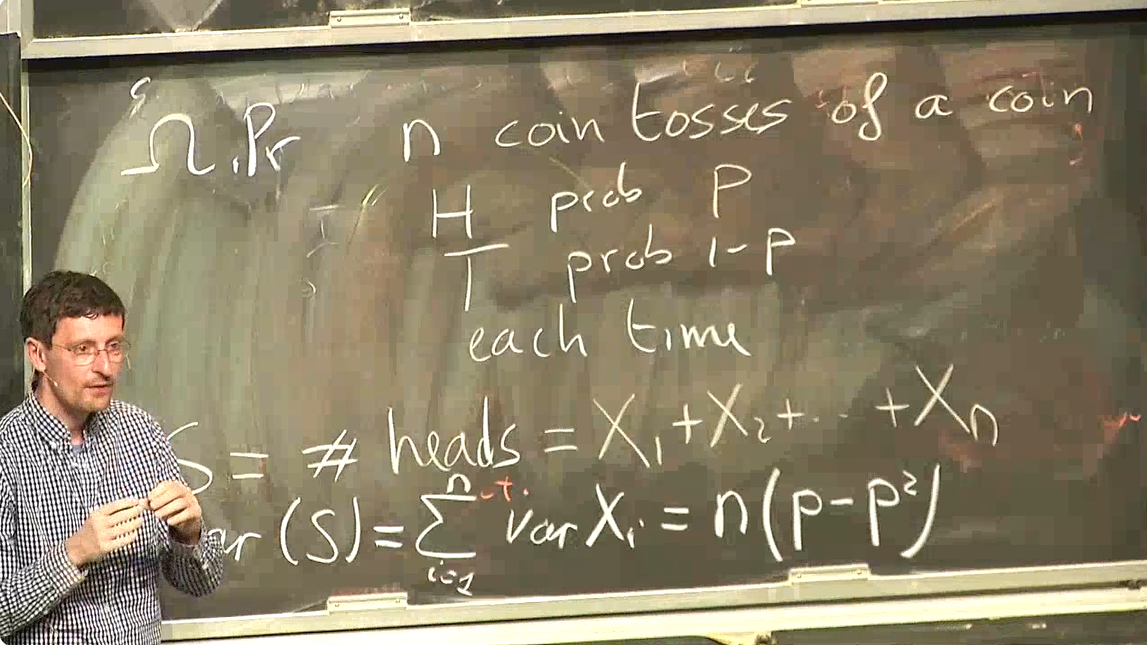 Ω, Pr n coin tosses of a coin
H prob P
T prob 1-p
each time
S = # heads = X₁ + X₂ + ... + Xₙ
ar (S) = ∑ⁿᵢ₌₁ Var Xᵢ = n(p-p²)